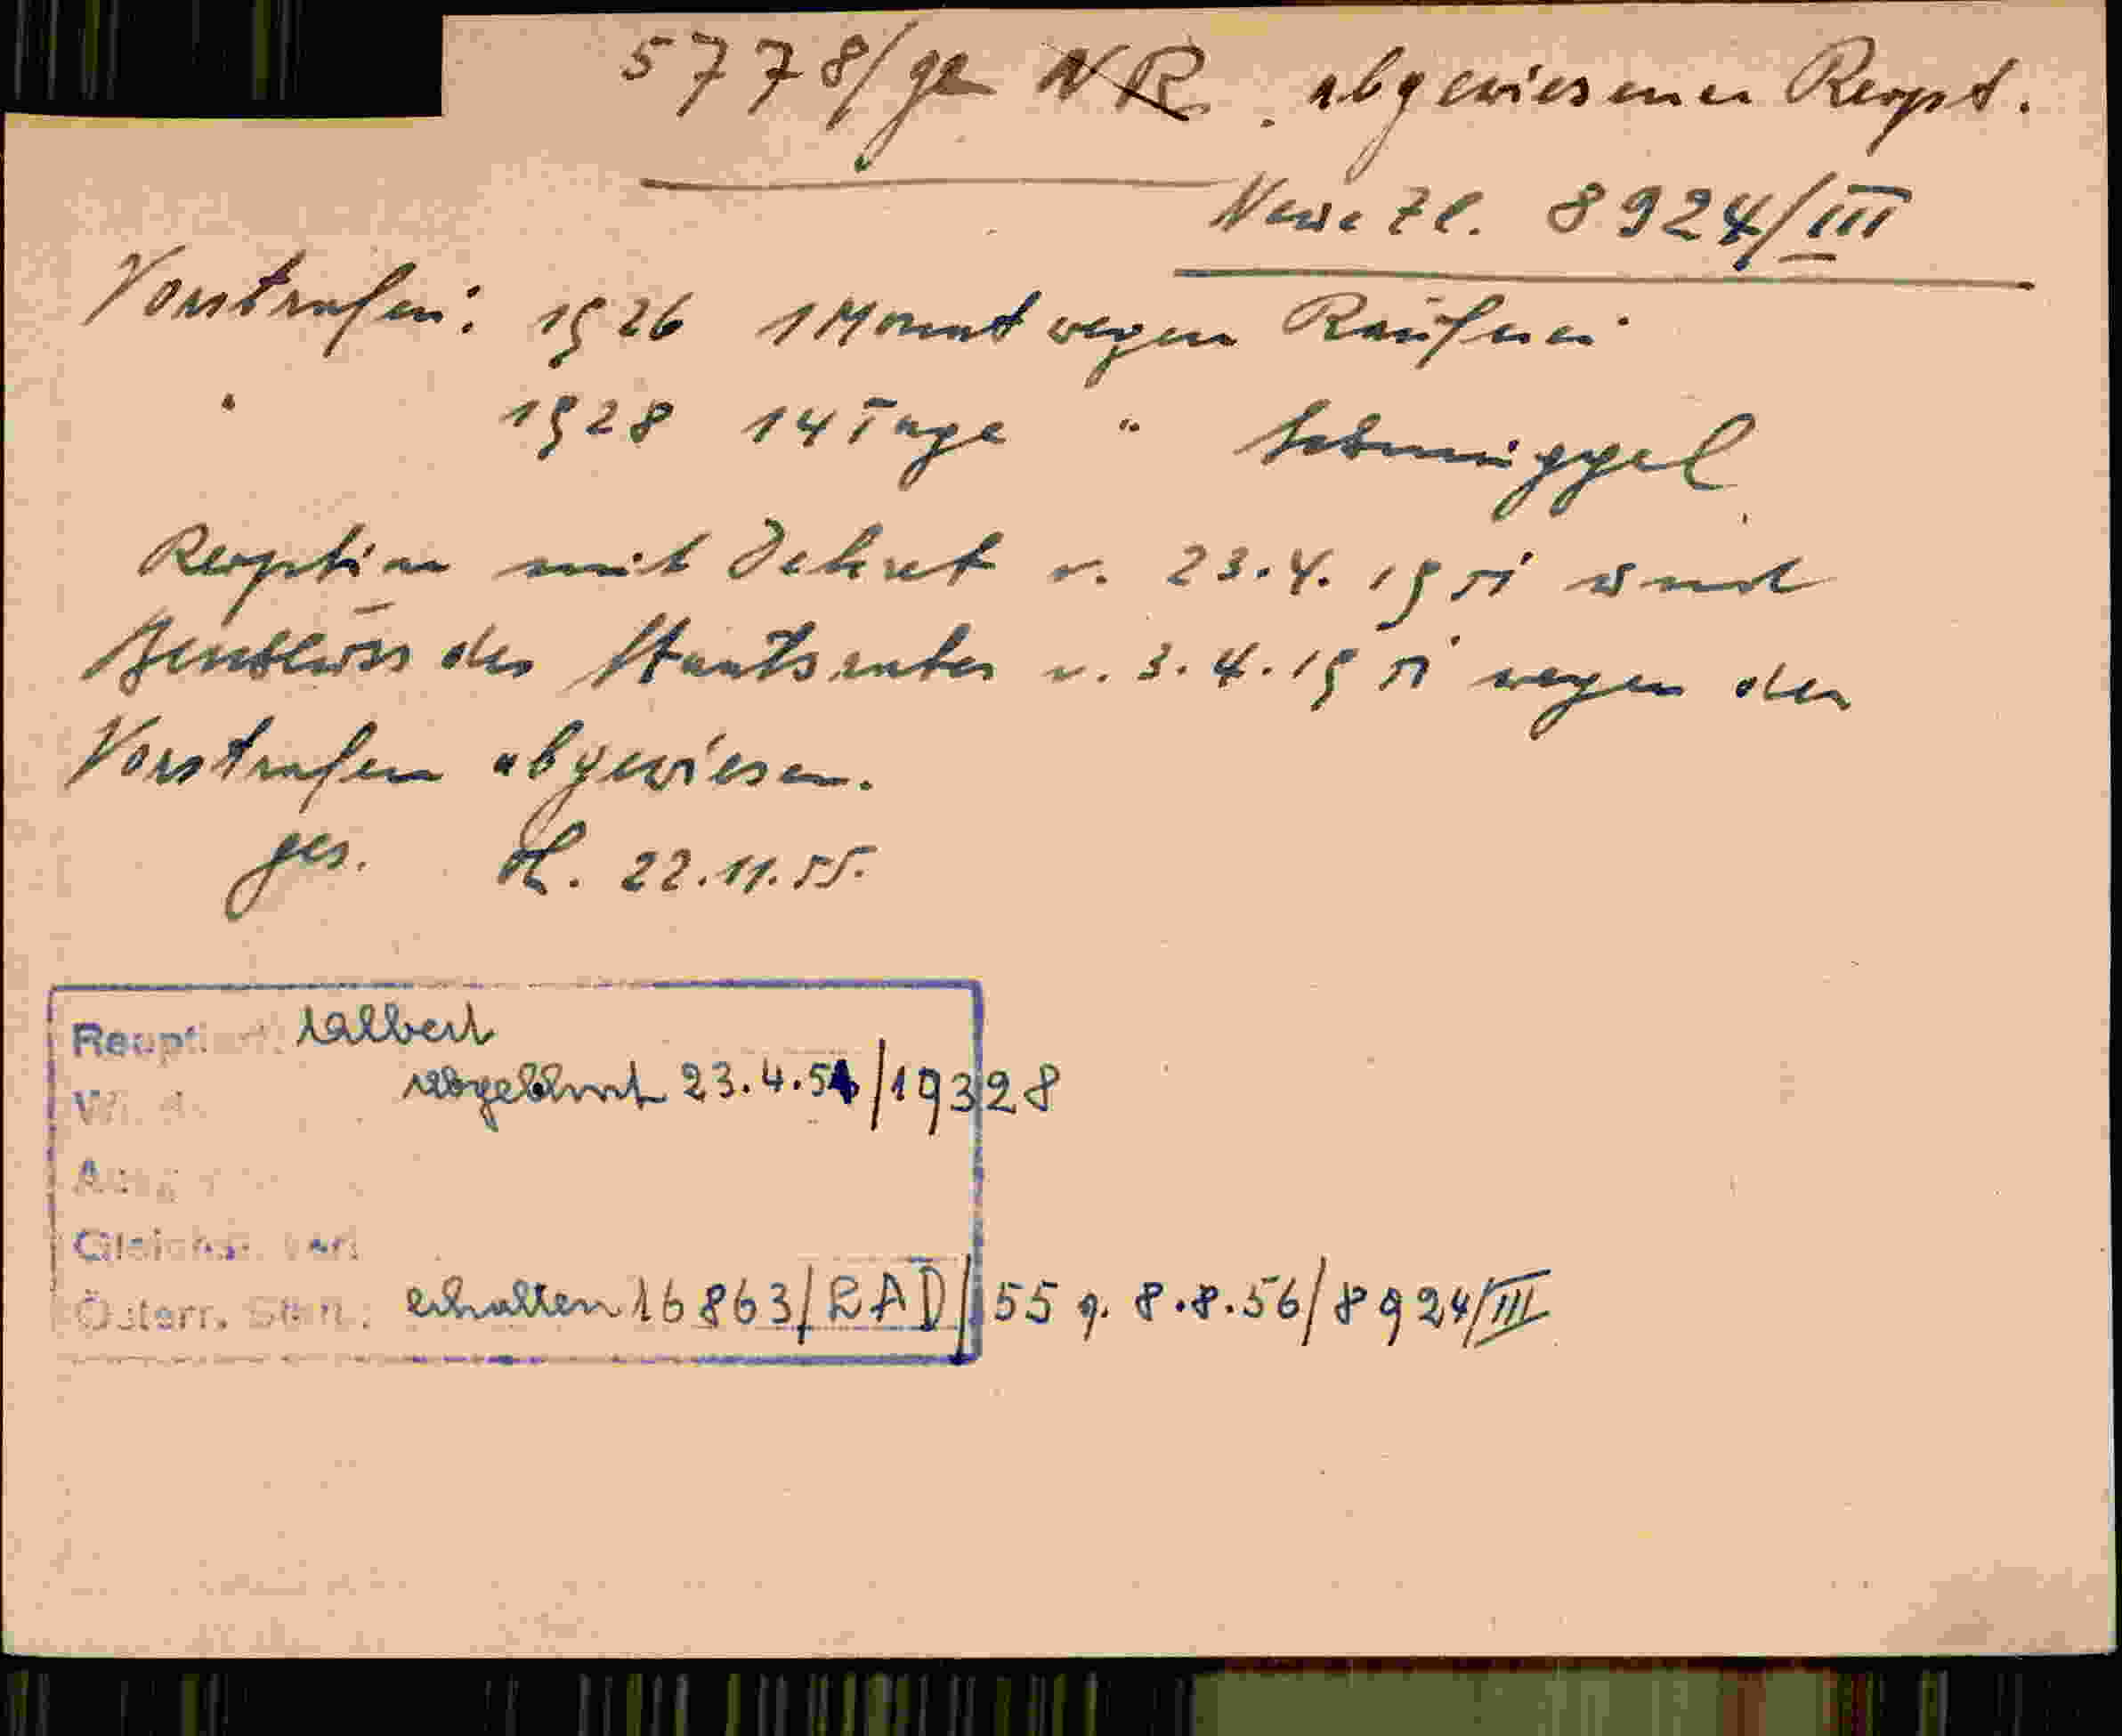 5778/ge NR. abgewiesener Reopt.
Neue Zl. 8924/III
Vorstrafen: 1926 1 Monat wegen Rauferei
" 1928 14 Tage " Schmuggel
Reoption mit Dekret v. 23.4.1951 und
Beschluss des Staatsrates v. 3.4.1951 wegen der
Vorstrafen abgewiesen.
ges. 22.11.55.
Reoptiert: selbert
abgelehnt 23.4.51/19328
Gleichst. Verl.
Österr. Stbg.: erhalten 16863/RAD/55 v. 8.8.56/8924/III